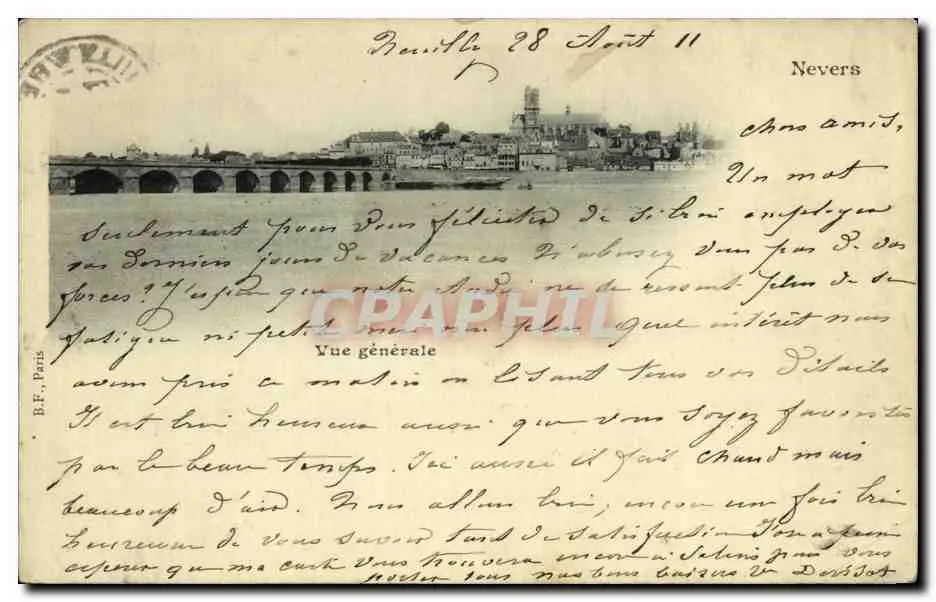 28 Août 11
Nevers
chers amis,
Un mot
seulement pour vous féliciter de si bien employer
vos derniers jours de vacances N'abusez vous pas de vos
forces? J'espère que notre ne de ressent plus de sa
fatigue ni petit non plus Quel intérêt nous
CPARHPIL
Vue générale
avons pris ce matin en lisant tous vos détails
Il est bien heureux aussi que vous soyez favorisés
par le beau temps. Ici aussi il fait chaud mais
beaucoup d'air. Nous allons bien, encore une fois bien
heureux de vous savoir tant de satisfaction
espérer que ma carte vous trouvera encore à Salins pour vous
porter tous nos bons baisers
B.F., Paris